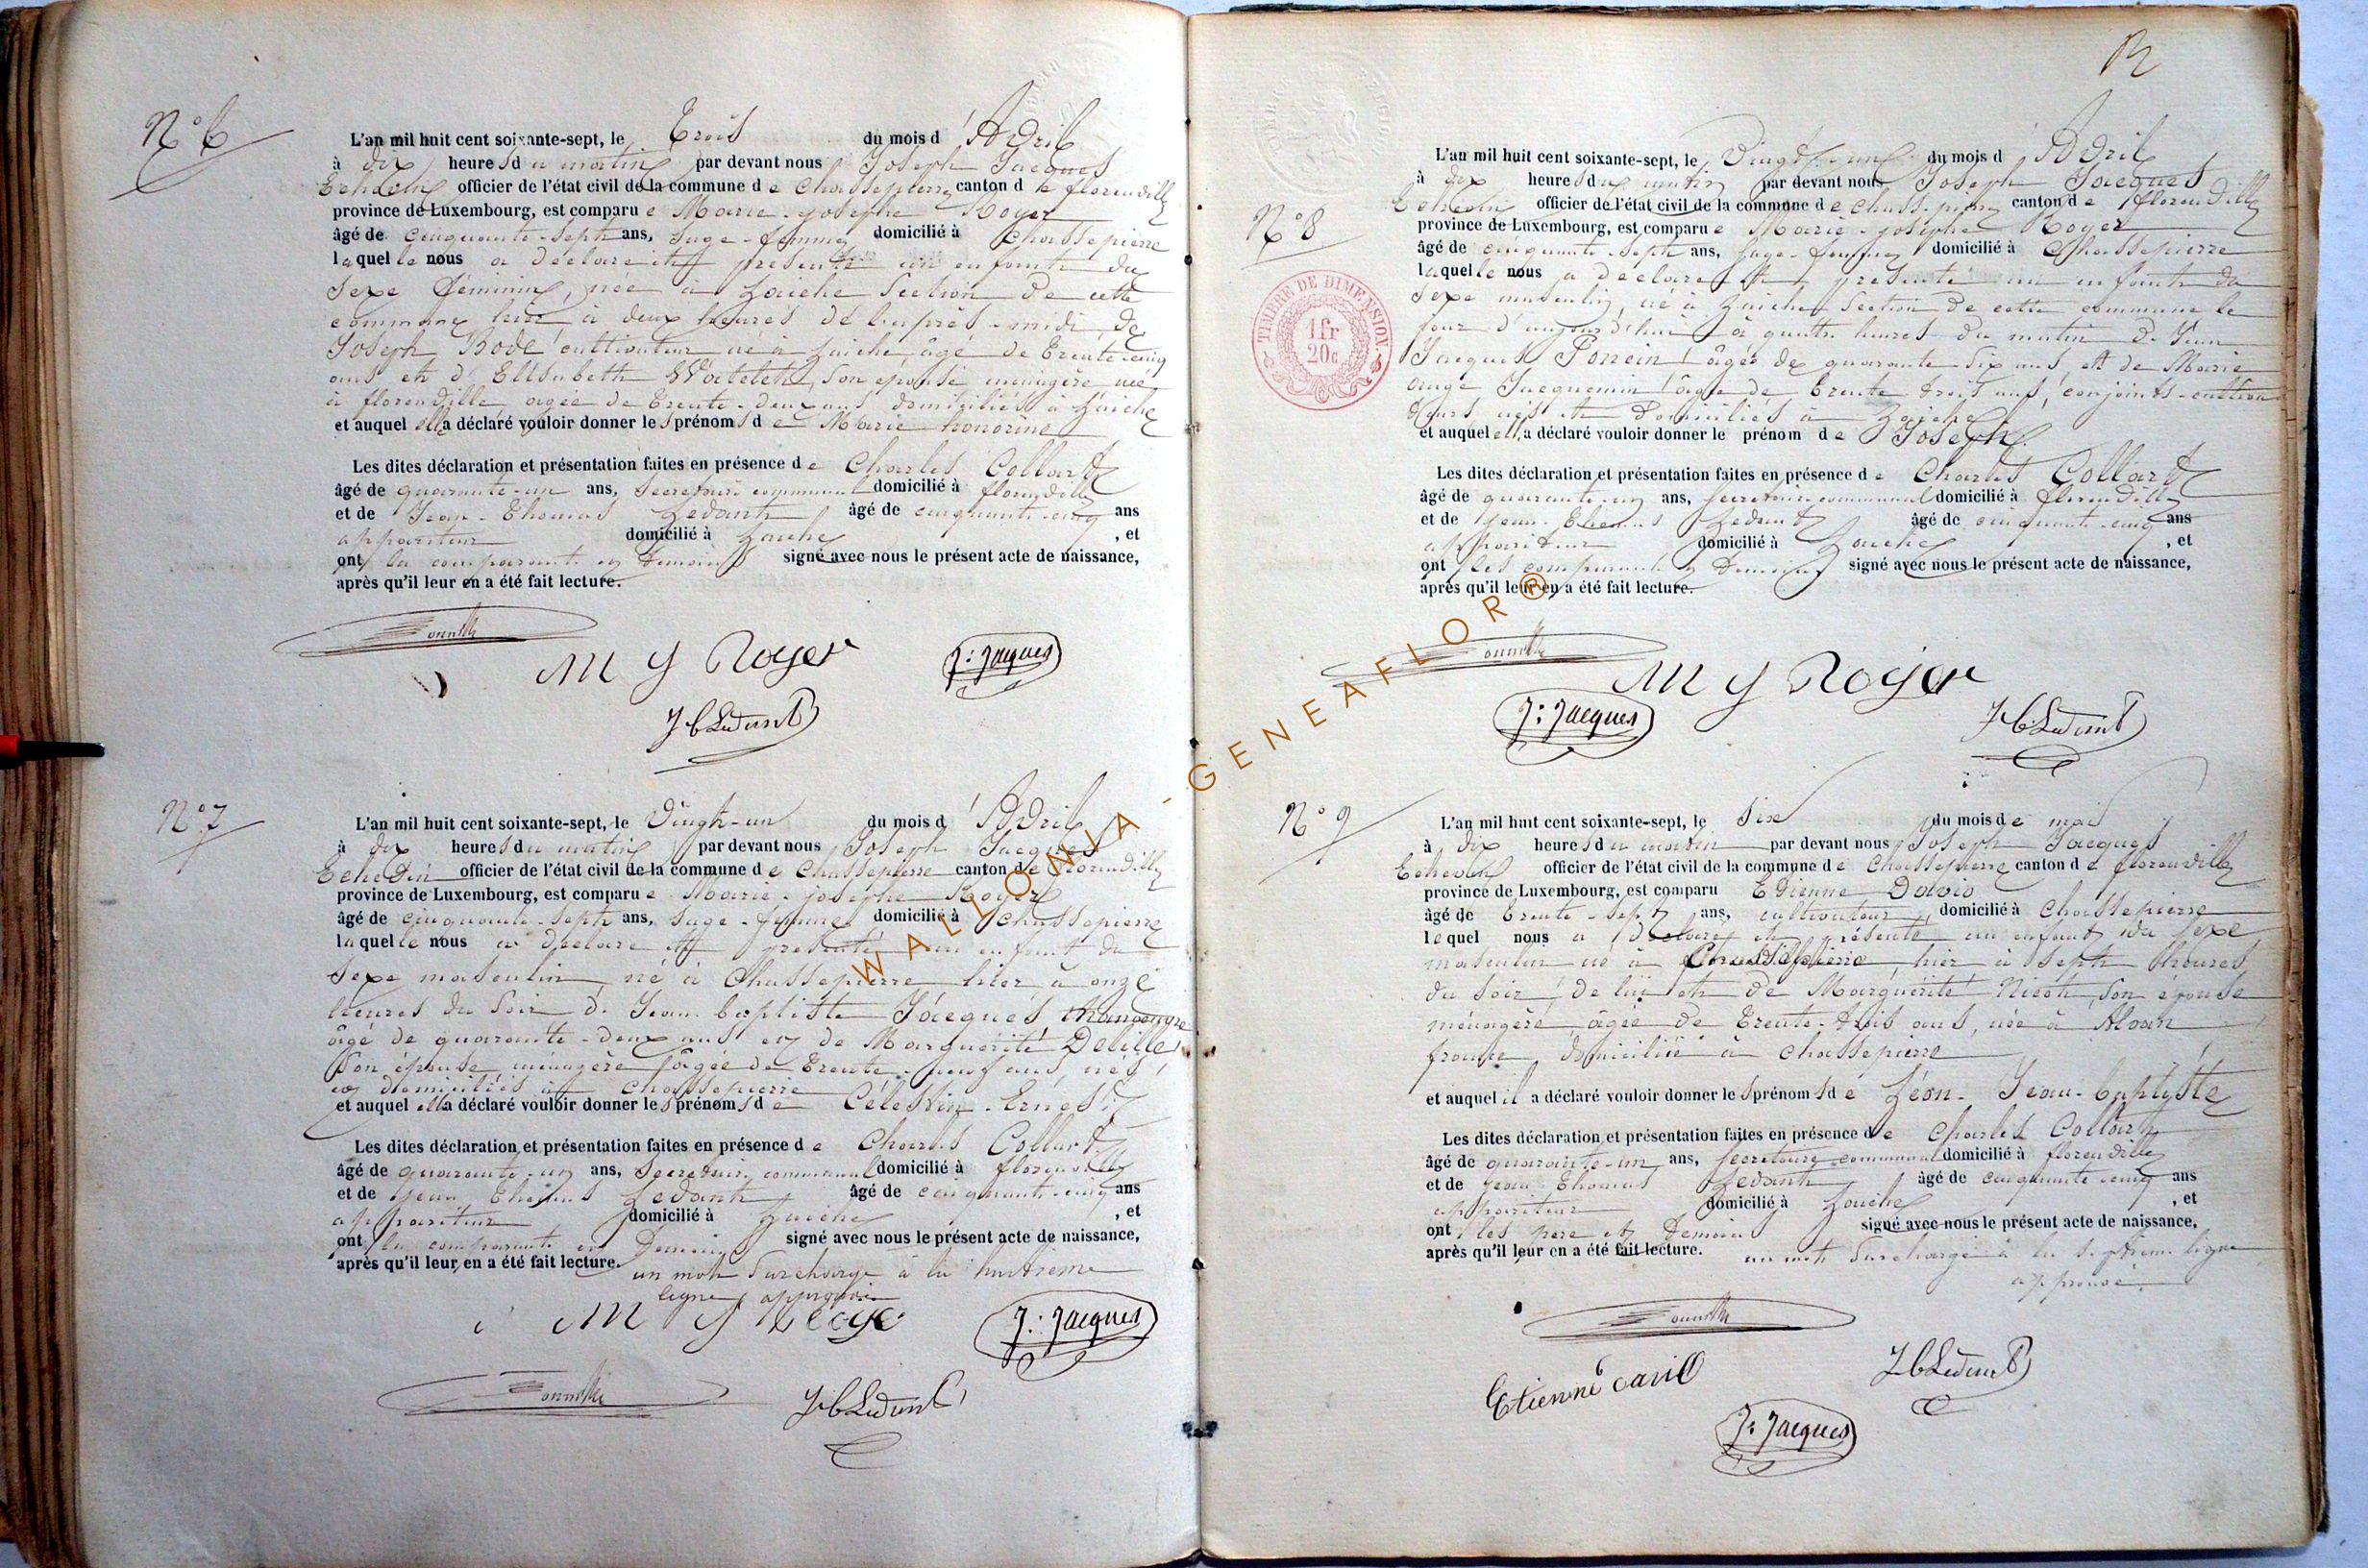 N° 6
L'an mil huit cent soixante-sept, le Trois du mois d'Avril
à dix heures du matin par devant nous Joseph Jacques
Echevin officier de l'état civil de la commune de Chassepierre canton de florenville
province de Luxembourg, est comparue Marie-josephe Royer
âgé de cinquante-sept ans, Sage-femme domicilié à Chassepierre
laquelle nous a déclaré et présenté un enfant du
Sexe féminin, née à Laiche Section de cette
commune hier à deux heures de l'après-midi, de
Joseph Bodé cultivateur né à Laiche, âgé de trente-cinq
ans et d'Elisabeth Watelet, son épouse ménagère née
à florenville agée de trente-deux ans domiciliés à Laiche
et auquel elle a déclaré vouloir donner les prénoms de Marie honorine
Les dites déclaration et présentation faites en présence de Charles Collard
âgé de quarante-un ans, Secretaire communal domicilié à florenville
et de Jean-Thomas Ledant âgé de cinquante-cinq ans
appariteur domicilié à Laiche, et
ont la comparante et témoins signé avec nous le présent acte de naissance,
après qu'il leur en a été fait lecture.
M J Royer
J: Jacques
J t Ledant
N° 7
L'an mil huit cent soixante-sept, le Vingt-un du mois d'Avril
à dix heures du matin par devant nous Joseph Jacques
Echevin officier de l'état civil de la commune de Chassepierre canton de florenville
province de Luxembourg, est comparue Marie-josephe Royer
âgé de cinquante-sept ans, Sage-femme domicilié à Chassepierre
laquelle nous a déclaré et présenté un enfant du
Sexe masculin, né à Chassepierre hier à onze
heures du Soir de Jean baptiste Jacques
âgé de quarante-deux ans et de Marguérite Delille
Son épouse, ménagère âgée de trente-neuf ans, nés
et domiciliés à Chassepierre
et auquel elle a déclaré vouloir donner les prénoms de Célestin-Ernest
Les dites déclaration et présentation faites en présence de Charles Collard
âgé de quarante-un ans, Secretaire communal domicilié à florenville
et de jean Thomas Ledant âgé de cinquante-cinq ans
appariteur domicilié à Laiche, et
ont la comparante et témoins signé avec nous le présent acte de naissance,
après qu'il leur en a été fait lecture. un mot Surchargé à la huitième
ligne approuvé
M J Royer
J: Jacques
J t Ledant
N° 8
L'an mil huit cent soixante-sept, le Vingt-un du mois d'Avril
à dix heures du matin par devant nous Joseph Jacques
Echevin officier de l'état civil de la commune de Chassepierre canton de florenville
province de Luxembourg, est comparue Marie-josephe Royer
âgé de cinquante-sept ans, Sage-femme domicilié à Chassepierre
laquelle nous a déclaré et présenté un enfant du
Sexe masculin, né à Laiche Section de cette commune le
jour d'aujourd'hui à quatre heures du matin de Jean
Jacques Poncin âgé de quarante six ans, et de Marie
ange Jacquemin âgée de trente trois ans, conjoints-cultiva
teurs, nés et domiciliés à Laiche
et auquel elle a déclaré vouloir donner le prénom de Joseph
Les dites déclaration et présentation faites en présence de Charles Collard
âgé de quarante-un ans, Secretaire communal domicilié à florenville
et de Jean-Thomas Ledant âgé de cinquante-cinq ans
appariteur domicilié à Laiche, et
ont les comparante et témoins signé avec nous le présent acte de naissance,
après qu'il leur en a été fait lecture.
TIMBRE DE DIMENSION
1 fr
20 c
M J Royer
J: Jacques
J t Ledant
N° 9
L'an mil huit cent soixante-sept, le Six du mois de mai
à dix heures du matin par devant nous Joseph Jacques
Echevin officier de l'état civil de la commune de Chassepierre canton de florenville
province de Luxembourg, est comparu Etienne David
âgé de trente-sept ans, cultivateur, domicilié à Chassepierre
lequel nous a Déclaré et présenté un enfant du Sexe
masculin né à Chassepierre hier à Sept heures
du Soir de lui et de Marguérite Nicot, Son épouse
ménagère, âgée de trente-trois ans, née à
france, domiciliée à Chassepierre
et auquel il a déclaré vouloir donner les prénoms de Léon-Jean-baptiste
Les dites déclaration et présentation faites en présence de Charles Collard
âgé de quarante-un ans, Secretaire communal domicilié à florenville
et de jean Thomas Ledant âgé de cinquante-cinq ans
appariteur domicilié à Laiche, et
ont les père et témoins signé avec nous le présent acte de naissance,
après qu'il leur en a été fait lecture. un mot Surchargé à la Septième ligne
approuvé
Etienne David
J t Ledant
J: Jacques
WALLONIA - GENEAFLOR®